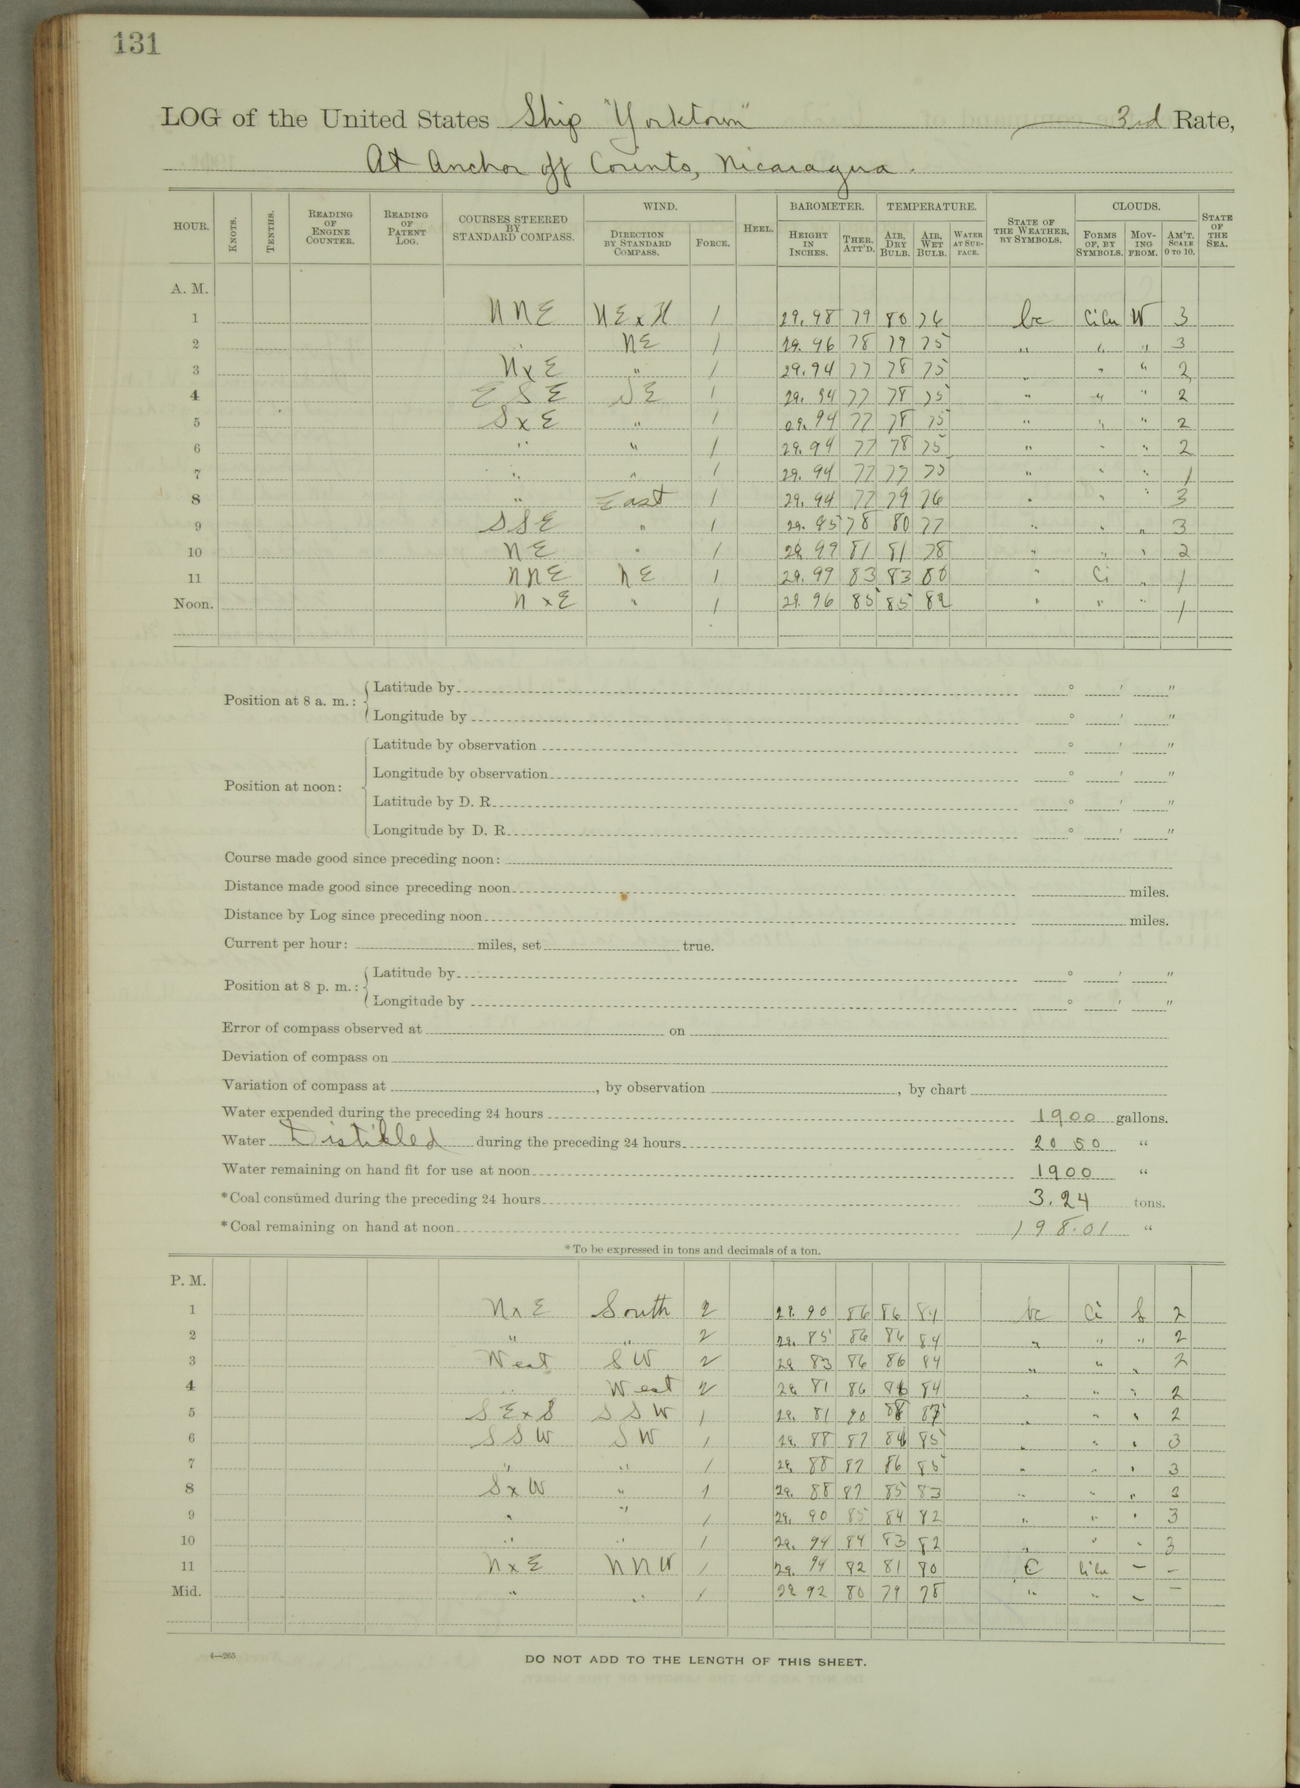 131
LOG of the United States Ship "Yorktown" 3rd Rate,
At Anchor off Corinto, Nicaragua.
HOUR. KNOTS. TENTHS. READING OF ENGINE COUNTER. READING OF PATENT LOG. COURSES STEERED BY STANDARD COMPASS. WIND. DIRECTION BY STANDARD COMPASS. FORCE. HEEL. BAROMETER. HEIGHT IN INCHES. THER. ATT'D. TEMPERATURE. AIR, DRY BULB. AIR, WET BULB. WATER AT SURFACE. STATE OF THE WEATHER, BY SYMBOLS. CLOUDS. FORMS OF, BY SYMBOLS. MOVING FROM. AM'T, SCALE 0 TO 10. STATE OF THE SEA.
A. M.
1 NNE NExN 1 29.98 79 80 76 bc CiCu W 3
2 " NE 1 29.96 78 79 75 " " " 3
3 NxE " 1 29.94 77 78 75 " " " 2
4 ESE SE 1 29.94 77 78 75 " " " 2
5 SxE " 1 29.94 77 78 75 " " " 2
6 " " 1 29.94 77 78 75 " " " 2
7 " " 1 29.94 77 77 75 " " " 1
8 " East 1 29.94 77 79 76 " " " 3
9 SSE " 1 29.95 78 80 77 " " " 3
10 NE " 1 29.97 81 81 78 " " " 2
11 NNE NE 1 29.99 83 83 80 " Ci " 1
Noon. NxE " 1 29.96 85 85 82 " " " 1
Position at 8 a. m.: Latitude by ° ' "
Longitude by ° ' "
Position at noon: Latitude by observation ° ' "
Longitude by observation ° ' "
Latitude by D. R. ° ' "
Longitude by D. R. ° ' "
Course made good since preceding noon:
Distance made good since preceding noon miles.
Distance by Log since preceding noon miles.
Current per hour: miles, set true.
Position at 8 p. m.: Latitude by ° ' "
Longitude by ° ' "
Error of compass observed at on
Deviation of compass on
Variation of compass at , by observation , by chart
Water expended during the preceding 24 hours 1900 gallons.
Water Distilled during the preceding 24 hours 2050 "
Water remaining on hand fit for use at noon 1900 "
*Coal consumed during the preceding 24 hours 3.24 tons.
*Coal remaining on hand at noon 198.01 "
*To be expressed in tons and decimals of a ton.
P. M.
1 NxE South 2 29.90 86 86 84 bc Ci S 2
2 " " 2 29.85 86 86 84 " " " 2
3 West SW 2 29.83 86 86 84 " " " 2
4 " West 2 29.81 86 86 84 " " " 2
5 SExS SSW 1 29.81 90 88 87 " " " 2
6 SSW SW 1 29.88 87 86 85 " " " 3
7 " " 1 29.88 87 86 85 " " " 3
8 SxW " 1 29.88 87 85 83 " " " 3
9 " " 1 29.90 85 84 82 " " " 3
10 " " 1 29.94 84 83 82 " " " 3
11 NxE NNW 1 29.94 82 81 80 C CiCu - -
Mid. " " 1 29.92 80 79 78 " " - -
4—265
DO NOT ADD TO THE LENGTH OF THIS SHEET.